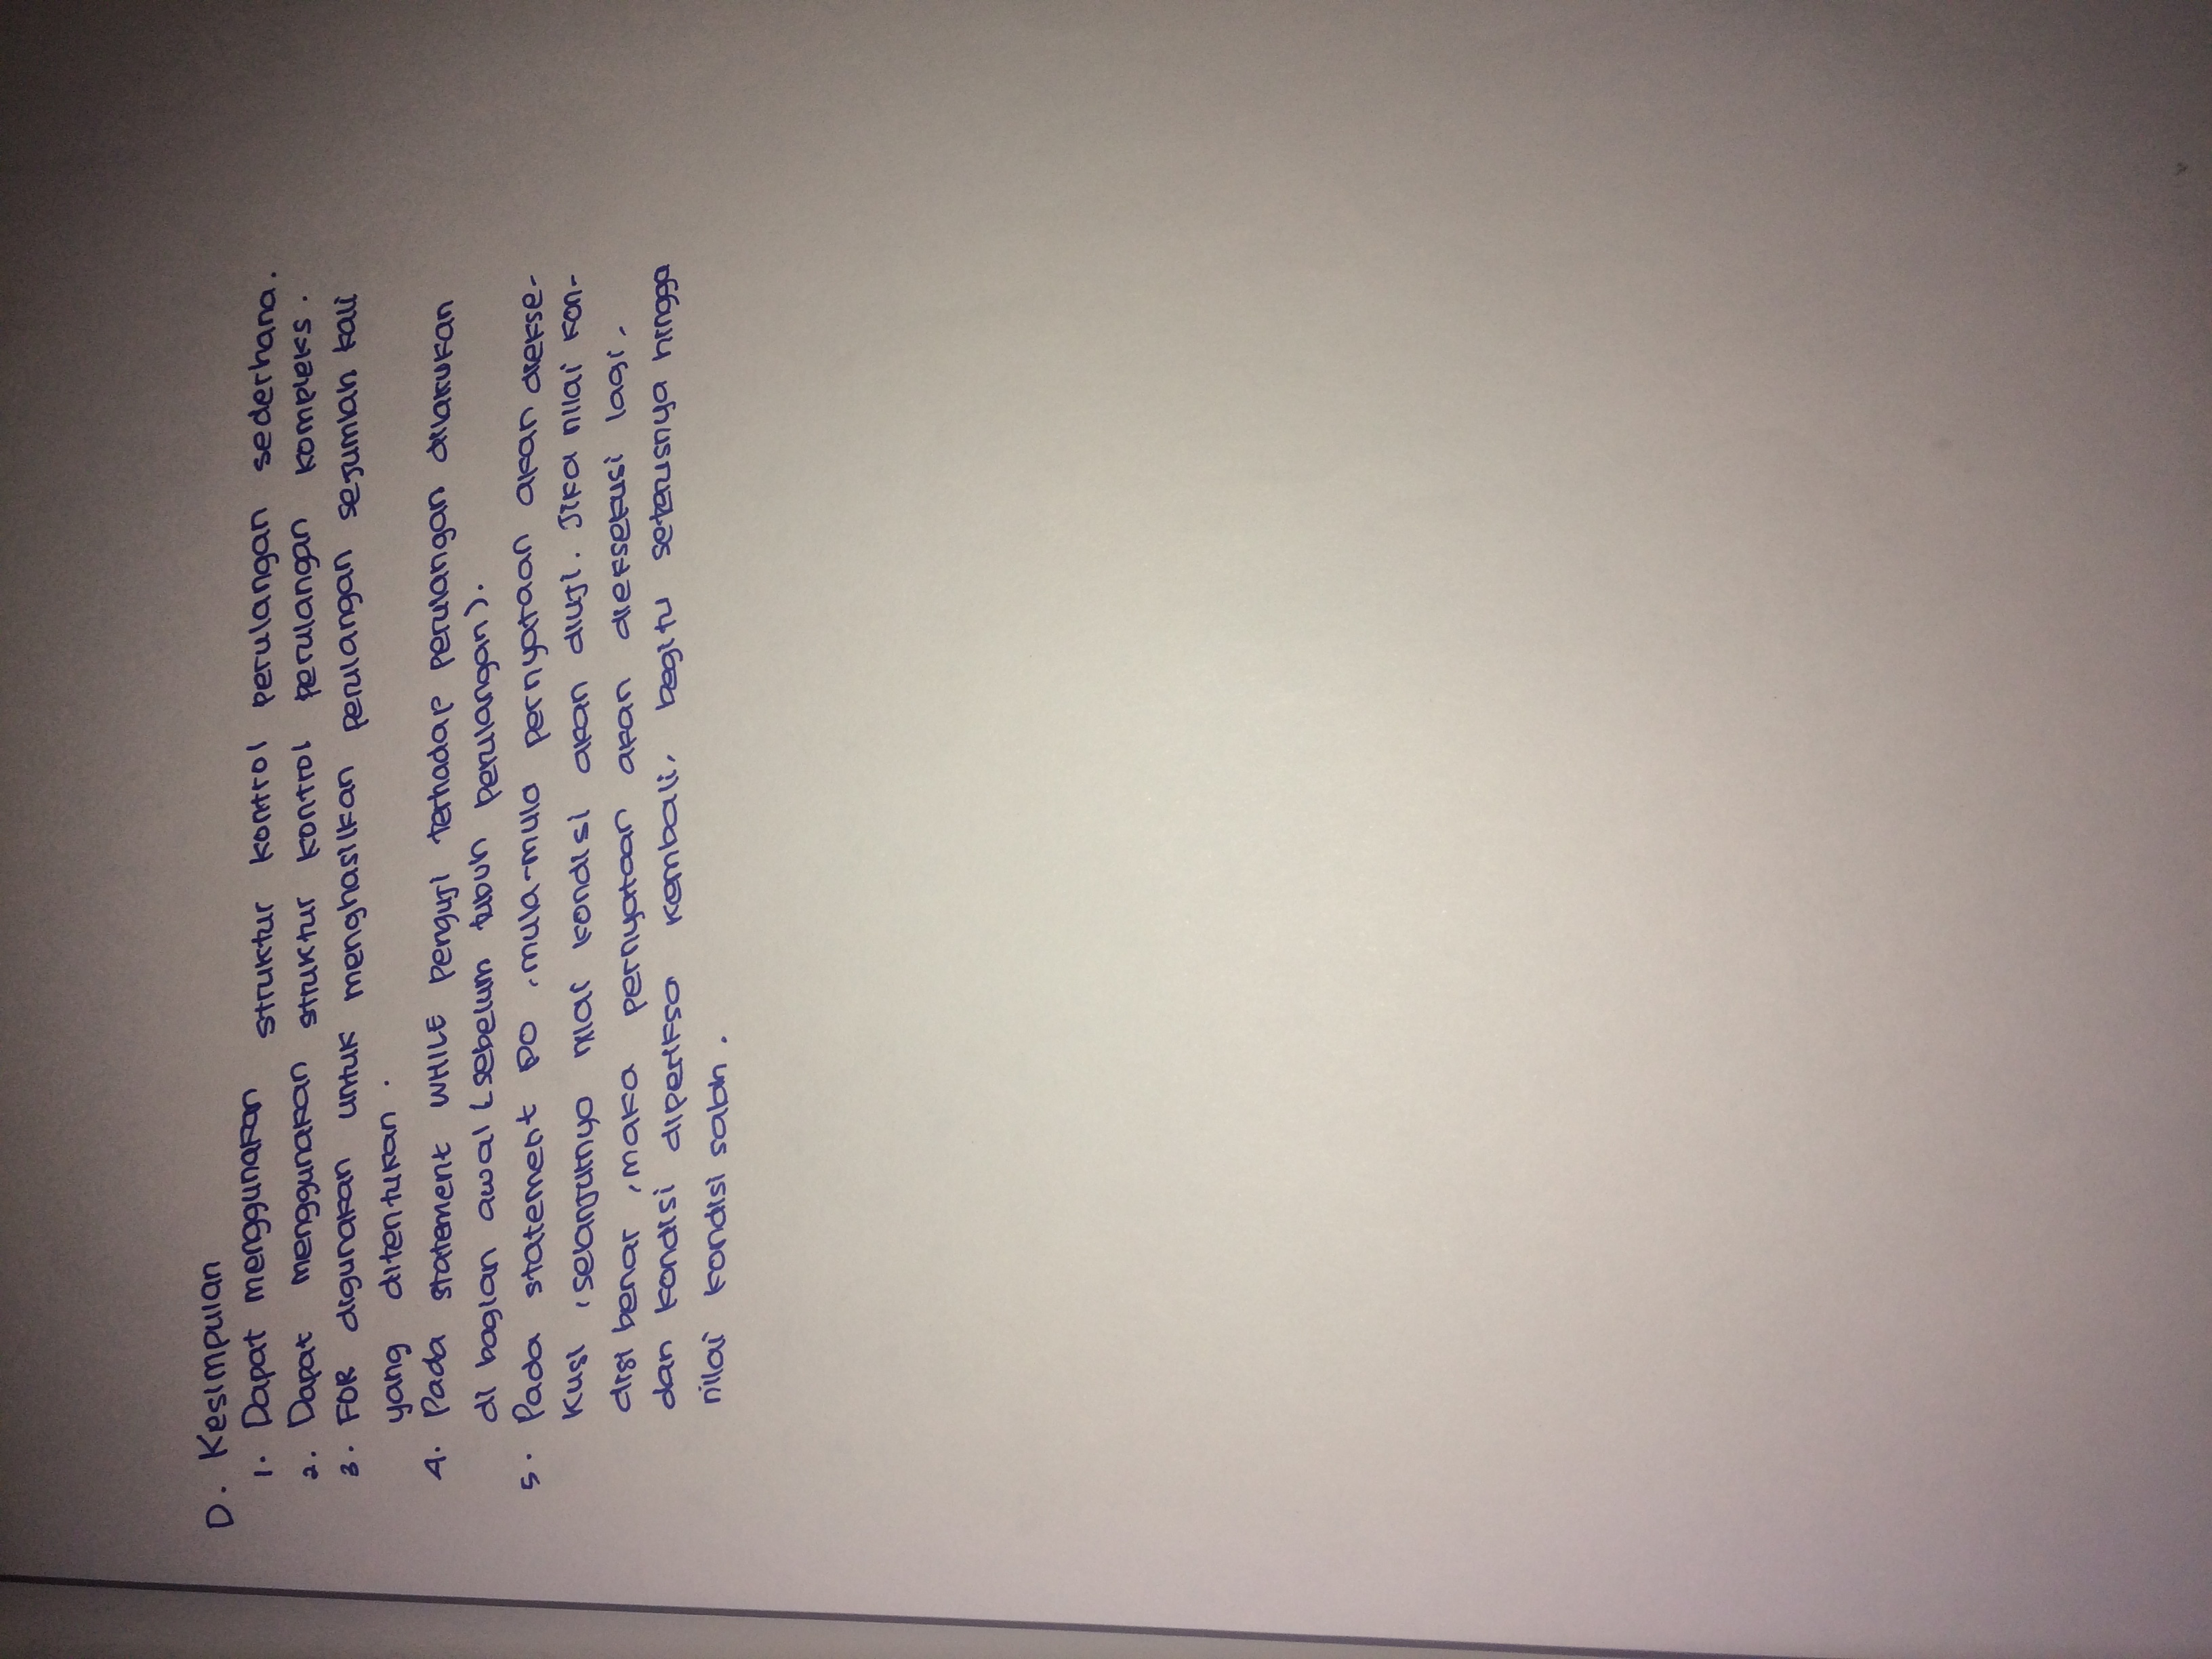 D. Kesimpulan
1. Dapat menggunakan struktur kontrol perulangan sederhana.
2. Dapat menggunakan struktur kontrol perulangan kompleks.
3. FOR digunakan untuk menghasilkan perulangan sejumlah kali
yang ditentukan.
4. Pada statement WHILE penguji terhadap perulangan dilakukan
di bagian awal (sebelum tubuh perulangan).
5. Pada statement DO, mula-mula pernyataan akan diekse-
kusi, selanjutnya nilai kondisi akan diuji. Jika nilai kon-
disi benar, maka pernyataan akan dieksekusi lagi,
dan kondisi diperiksa kembali, begitu seterusnya hingga
nilai kondisi salah.